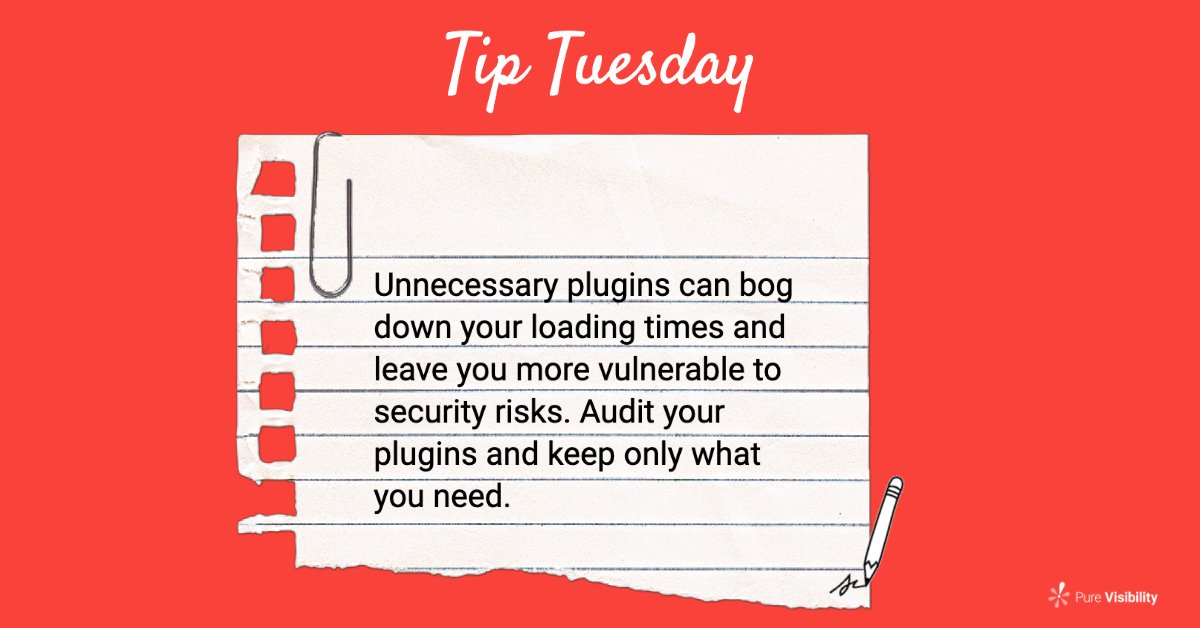 Tip Tuesday
Unnecessary plugins can bog
down your loading times and
leave you more vulnerable to
security risks. Audit your
plugins and keep only what
you need.
Pure Visibility